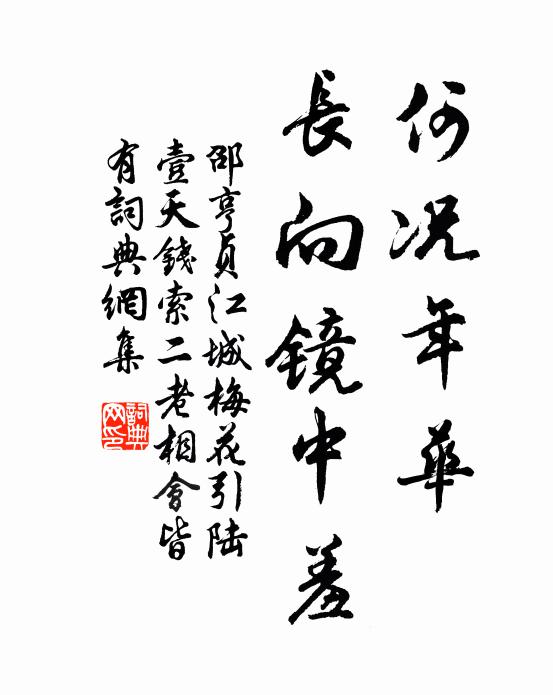 何况年華
長向鏡中羞
邵亨貞江城梅花引陆
壹天錢索二老相會皆
有詞典網集
詞典网印